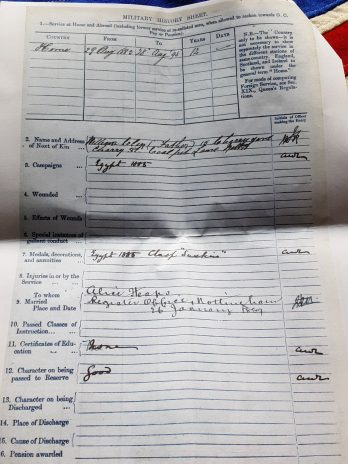 MILITARY HISTORY SHEET.
1.—Service at Home and Abroad (including former service of re-enlisted men, when allowed to reckon towards G. C. Pay or Pension)
COUNTRY FROM TO YEARS DAYS
Home 12
N.B.—The "Country" only to be shewn—it is not necessary to show separately the service in the different stations of the same country. England, Scotland, and Ireland to be shewn under the general term "Home."
For mode of computing Foreign Service, see Sec. XIX., Queen's Regulations.
Initials of Officer making the Entry
2. Name and Address of Next of Kin William (Father)
3. Campaigns Egypt 1885
4. Wounded
5. Effects of Wounds
6. Special instances of gallant conduct
7. Medals, decorations, and annuities Egypt 1885 Clasp "Suakin"
8. Injuries in or by the Service
9. Married To whom Place and Date Alice
Register Office, Nottingham
26 January
10. Passed Classes of Instruction
11. Certificates of Education
12. Character on being passed to Reserve Good
13. Character on being Discharged
14. Place of Discharge
15. Cause of Discharge
16. Pension awarded